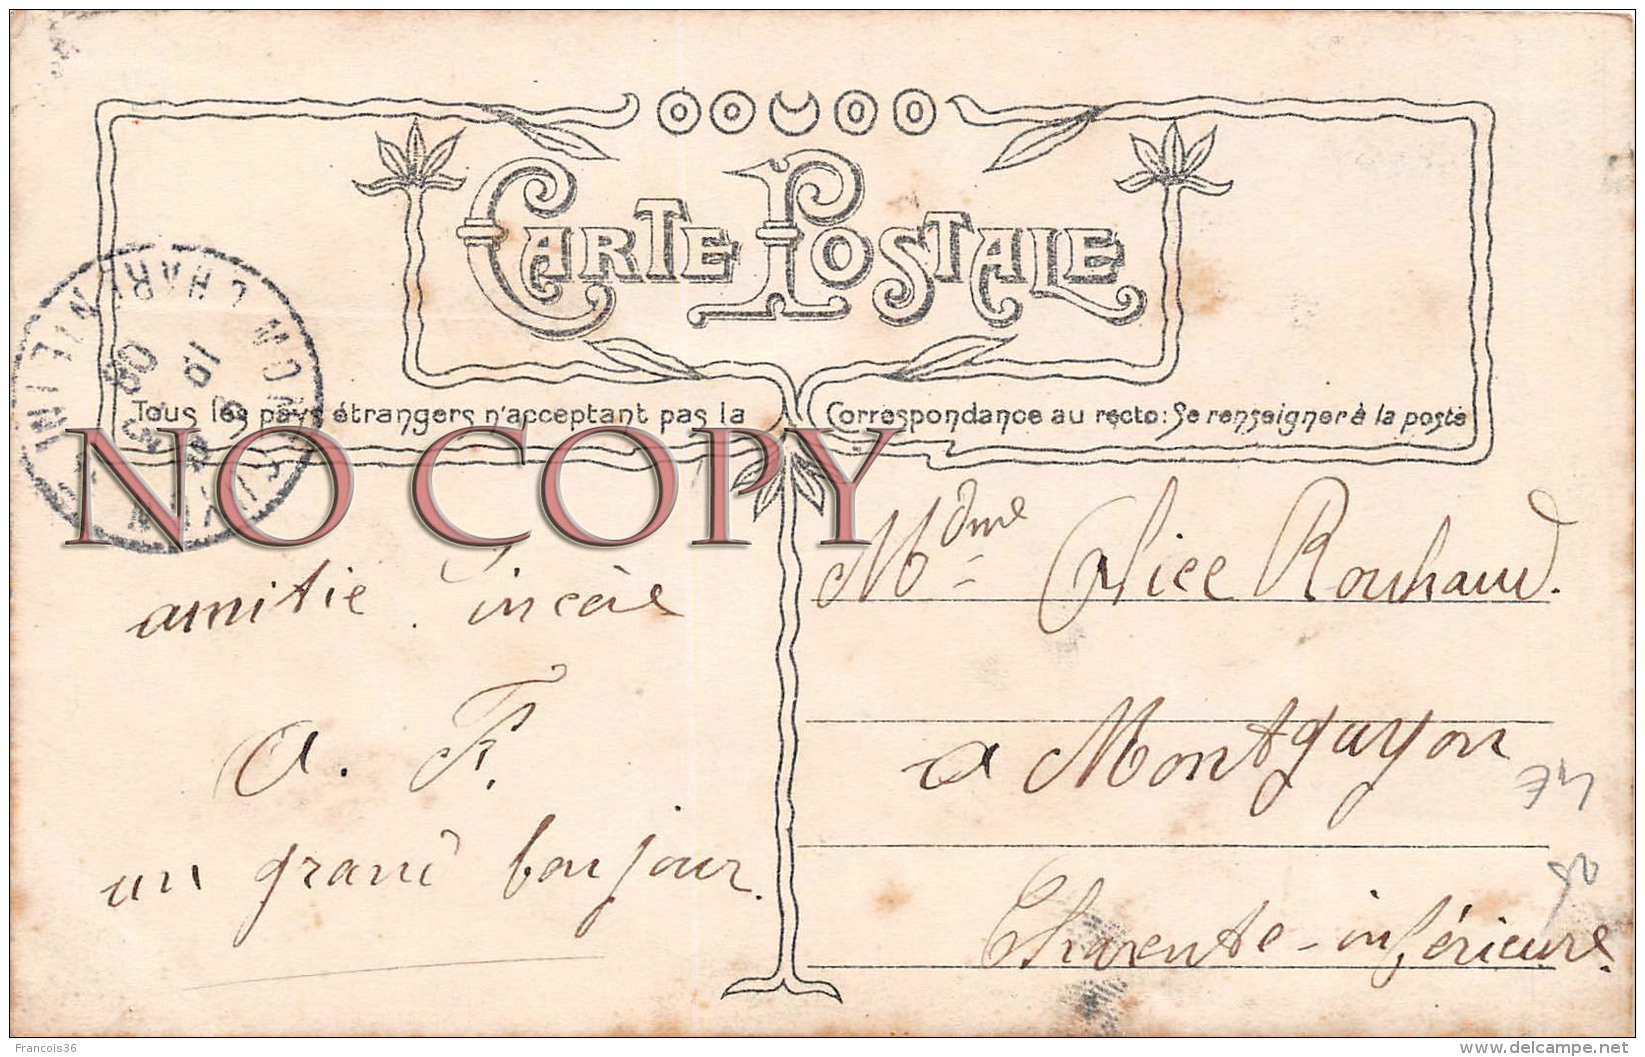 CARTE POSTALE
Tous les pays étrangers n'acceptant pas la Correspondance au recto: Se renseigner à la poste
NO COPY
amitié sincère
a. F.
un grand bonjour.
Mdme Alice Rouhaud.
a Montguyon
Charente-inférieure.
08
Francois36
www.delcampe.net